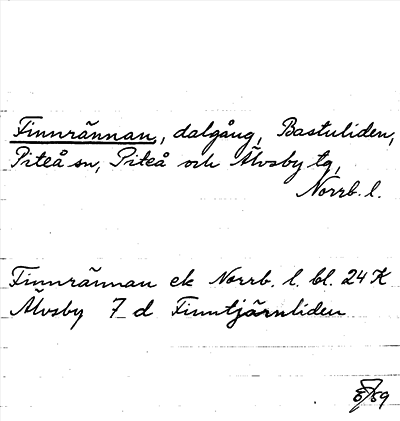 Finnrännan, dalgång, Bastuliden,
Piteå sn, Piteå och Älvsby tg,
Norrb. l.
Finnrännan ek Norrb. l. bl. 24 K
Älvsby 7 d Finntjärnliden
/59